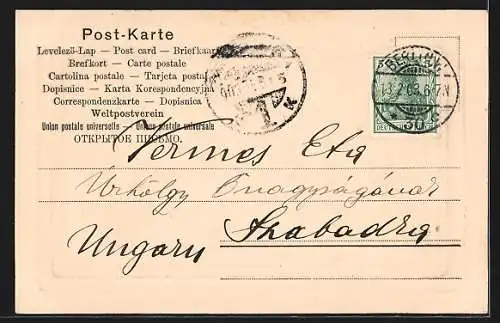 Post-Karte
Levelező-Lap — Post card — Briefkaart
Brefkort - Carte postale
Cartolina postale - Tarjeta postal
Dopisnice - Karta Korespondencyjna
Correspondenzkarte - Dopisnica
Weltpostverein
Union postale universelle — Union postale universale
ОТКРЫТОЕ ПИСЬМО.
BERLIN W.
13.2.03.6-7N
* 30
DEUTSCHES
T
K
Vermes Eta
Urhölgy Őnagyságának
Ungarn Szabadka